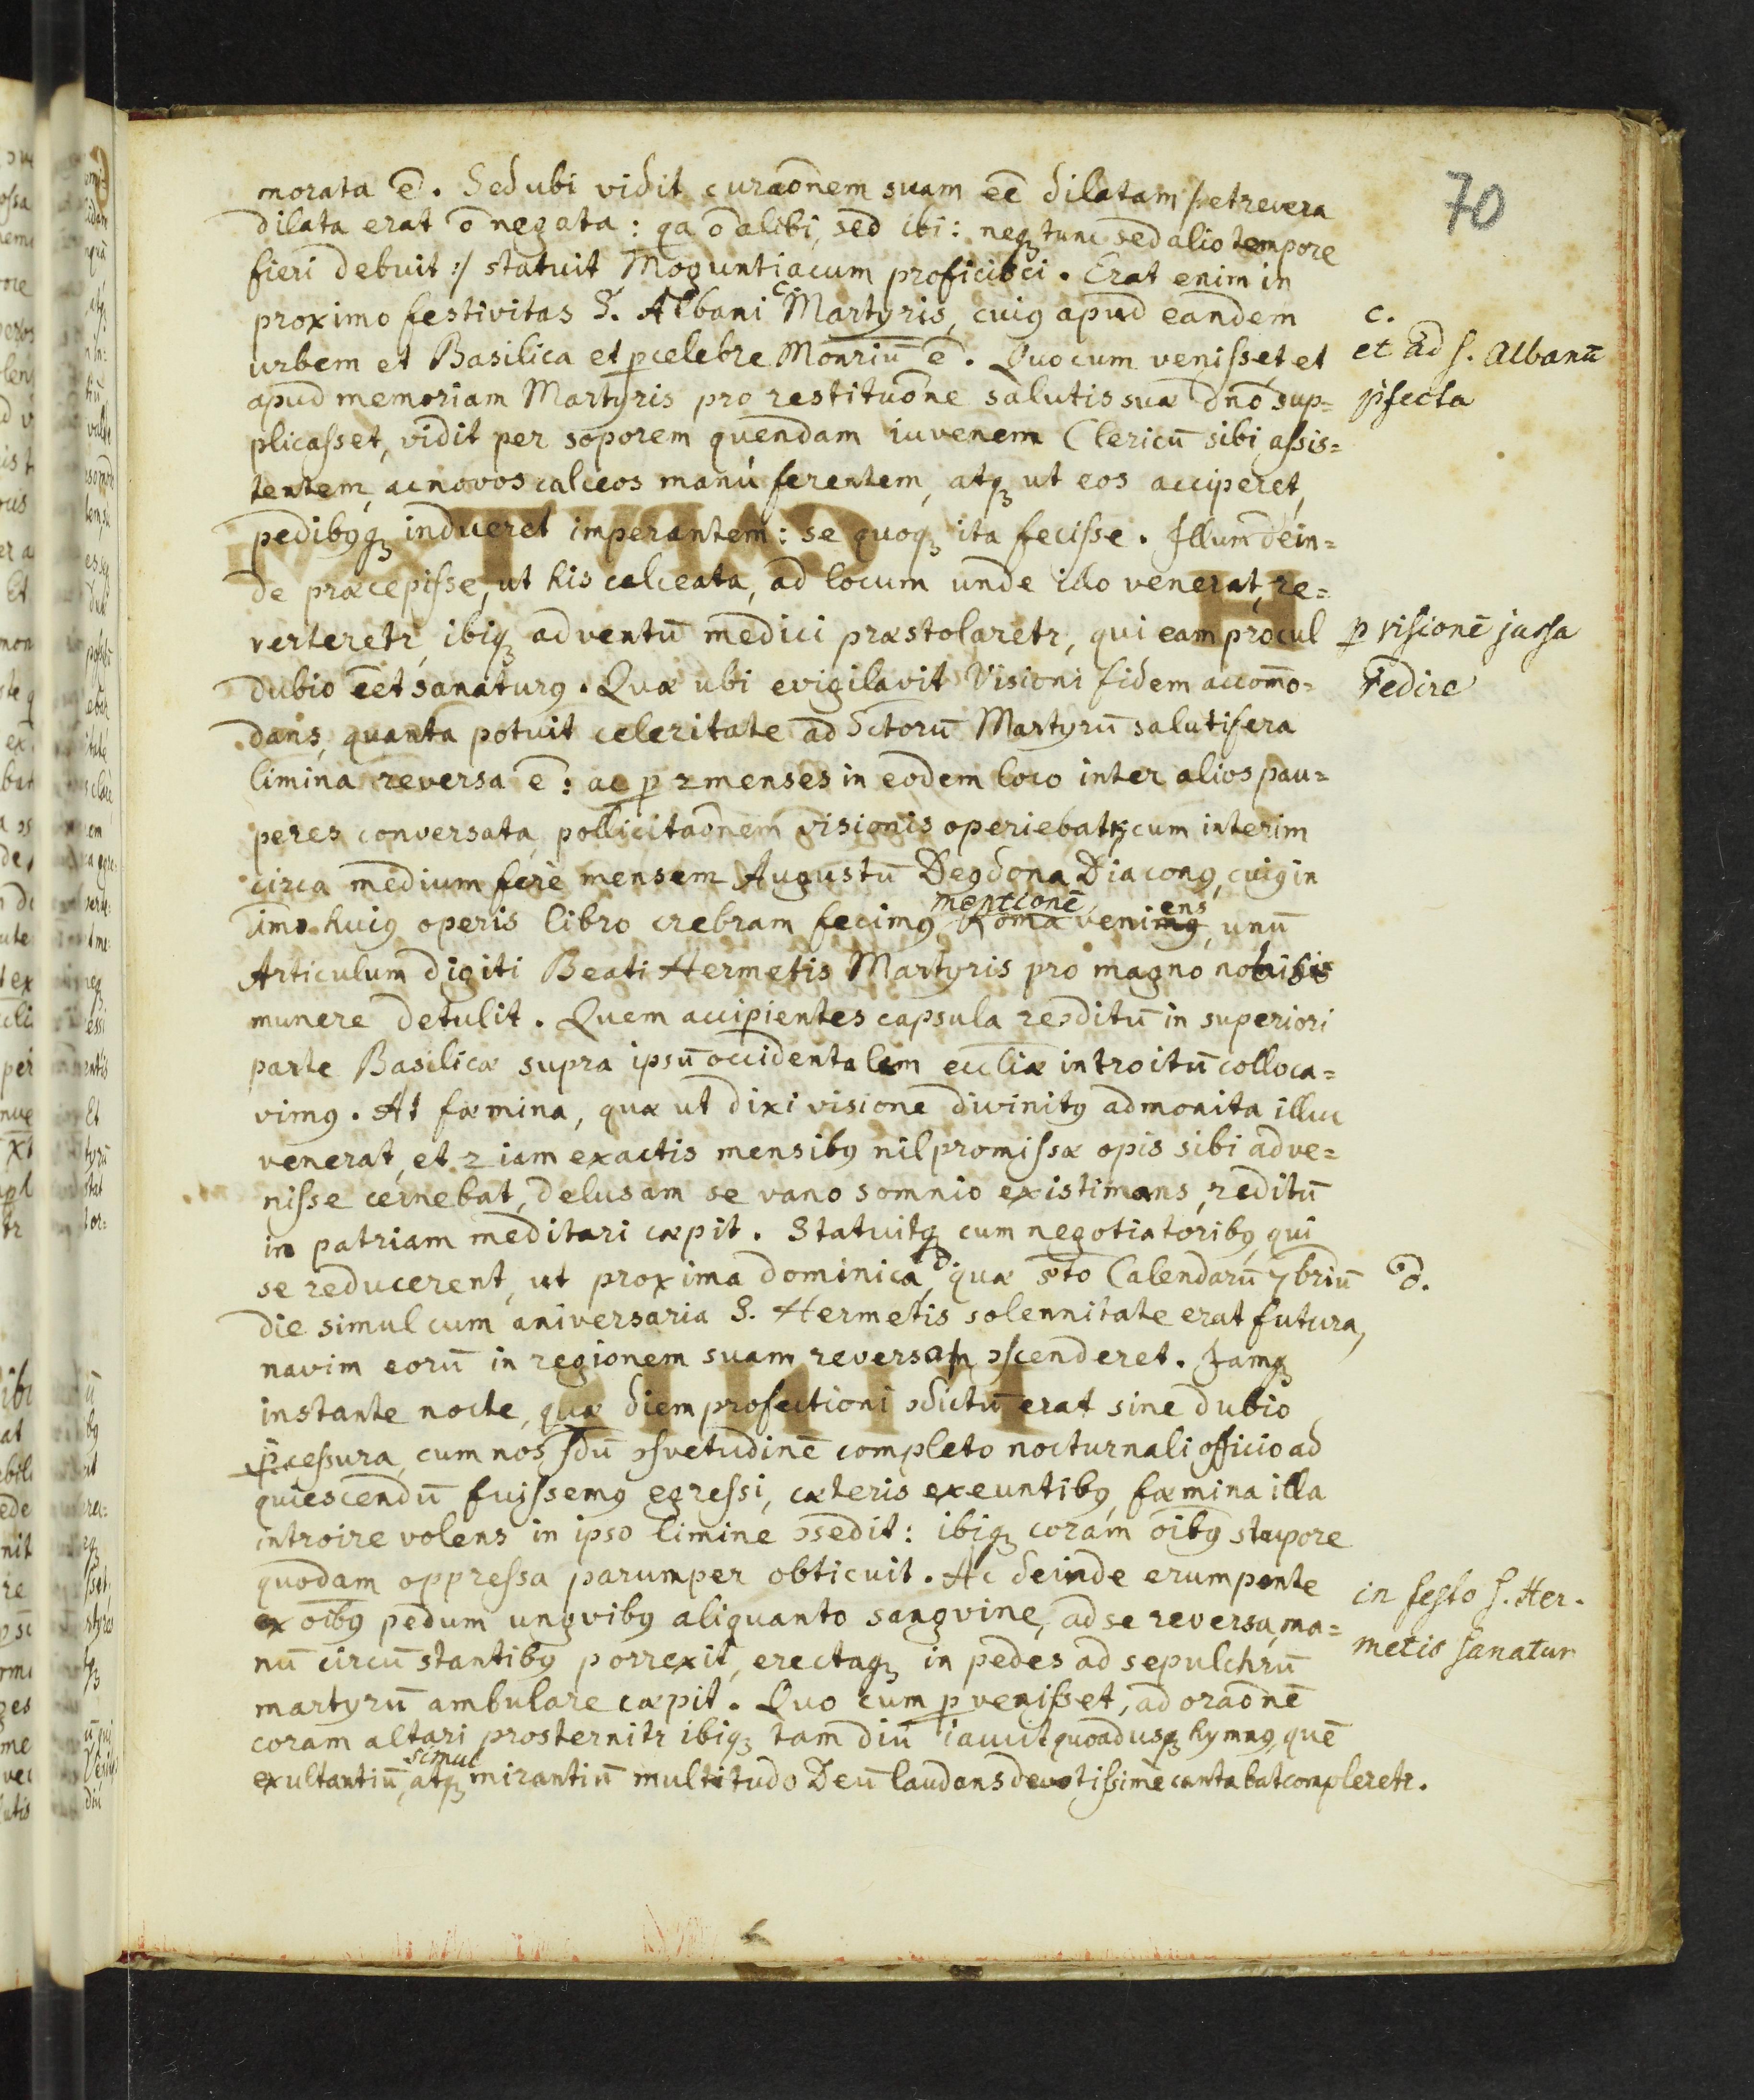 70
morata ē. Sed ubi vidit curaōnem suam eē dilatam /:et revera
dilata erat ō negata: qa ō alibi, sed ibi: neqȝ tunc sed alio tempore
fieri debuit:/ statuit Moguntiacum proficisci. Erat enim in
proximo festivitas S. Albani c. Martyris, cuiꝯ apud eandem
urbem et Basilica et pcelebre Monriū ē. Quo cum venisset et
apud memoriam Martyris pro restituōne salutis suæ dn̄o sup=
plicasset, vidit per soporem quendam iuvenem Clericū sibi assis=
tentem, ac novos calceos manu ferentem, atqȝ ut eos acciperet,
pedibꝯqȝ indueret imperantem: se quoqȝ ita fecisse. Illum dein=
de præcepisse, ut his calceata, ad locum unde illo venerat, re=
verteretr, ibiqȝ adventū medici præstolaretr, qui eam procul
dubio eēt sanaturꝯ. Quæ ubi evigilavit Visioni fidem accom̄o=
dans, quanta potuit celeritate ad Sctorū Martyrū salutifera
limina reversa ē: ac p 2 menses in eodem loco inter alios pau=
peres conversata, pollicitaōnem visionis operiebatr, cum interim
circa medium ferè mensem Augustū Deꝯdona Diaconꝯ, cuiꝯ in
imo huiꝯ operis libro crebram fecimꝯ mentionē, Roma veniens, unū
Articulum digiti Beati Hermetis Martyris pro magno nobis
munere detulit. Quem accipientes capsula reↄditū in superiori
parte Basilicæ supra ipsū occidentalem eccliæ introitū colloca=
vimꝯ. At fæmina, quæ ut dixi visione divinitꝯ admonita illuc
venerat, et 2 iam exactis mensibꝯ nil promissæ opis sibi adve=
nisse cernebat, delusam se vano somnio existimans, reditū
in patriam meditari cæpit. Statuitqȝ cum negotiatoribꝯ, qui
se reducerent, ut proxima dominica, d quæ 5to Calendarū 7briū
die simul cum aniversaria S. Hermetis solennitate erat futura,
navim eorū in regionem suam reversam ↄscenderet. Jamqȝ
instante nocte, quæ diem profectioni ↄdictū erat sine dubio
p̄cessura, cum nos sdū ↄsvetudinē completo nocturnali officio ad
quiescendū fuissemꝯ egressi, cæteris exeuntibꝯ, fæmina illa
introire volens in ipso limine ↄsedit: ibiqȝ coram oībꝯ stupore
quodam oppressa parumper obticuit. Ac deinde erumpente
ex oībꝯ pedum ungvibꝯ aliquanto sangvine, ad se reversa, ma=
nū circū stantibꝯ porrexit, erectaqȝ in pedes ad sepulchrū
martyrū ambulare cæpit. Quo cum pvenisset, ad oraōnē
coram altari prosternitr ibiqȝ tam diu iacuit quoadusqȝ hymnꝯ, quē
exultantiū, simul atqȝ mirantiū multitudo Deū laudans devotissimè cantabat compleretr.
c.
et ad S. Albanū
p̄fecta
p visionē jussa
redire
d.
in festo S. Her.
metis sanatur